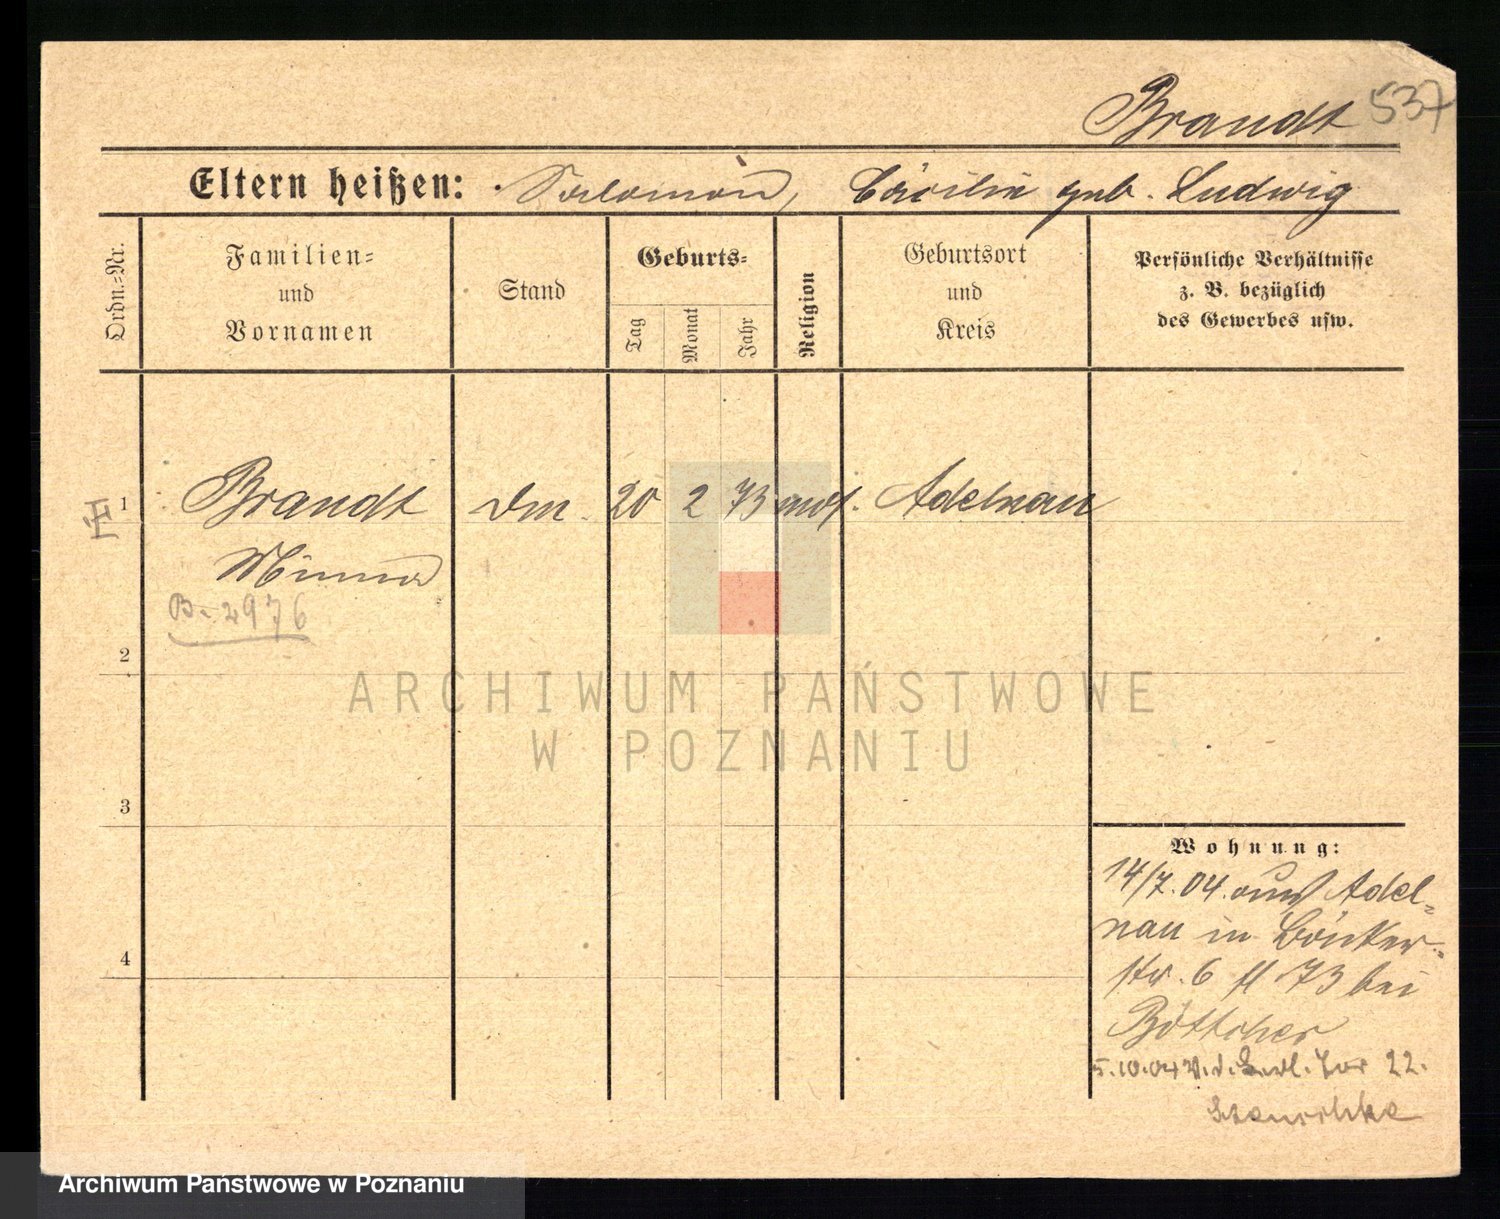 Brandt 537
Eltern heißen: Salomon, Cäcilie geb. Ludwig
Ordn.=Nr.
Familien=
und
Vornamen
Stand
Geburts=
Tag
Monat
Jahr
Religion
Geburtsort
und
Kreis
Persönliche Verhältnisse
z. B. bezüglich
des Gewerbes usw.
1 Brandt 20 2 73 mos. Adelnau
Minna
B-2976
2
ARCHIWUM PAŃSTWOWE
W POZNANIU
3
4
Wohnung:
14/7.04. aus Adel=
nau in Bäcker=
str. 6 II 73 bei
Böttcher
5.10.04 Berl. Tor 22.
Archiwum Państwowe w Poznaniu